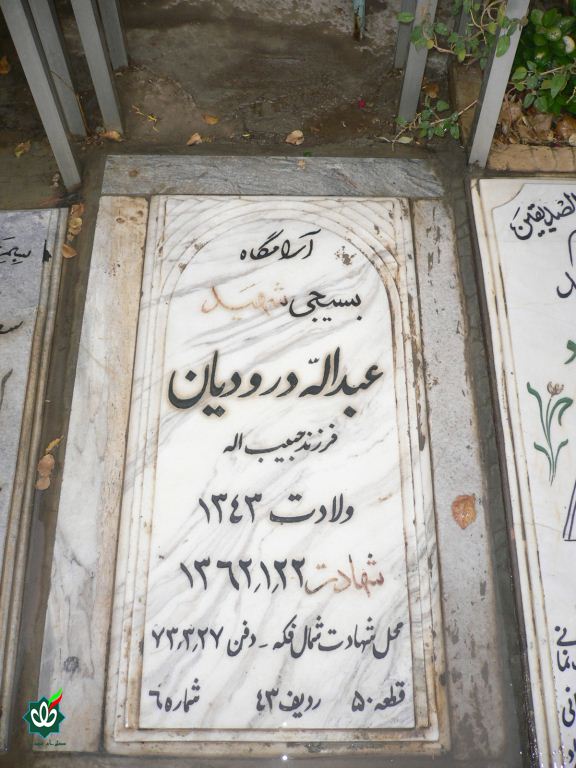 آرامگاه
بسیجی شهید
عبداله درودیان
فرزند حبیب اله
ولادت ۱۳۴۳
شهادت ۱۳۶۲٫۱٫۲۲
محل شهادت شمال فکه - دفن ۷۳٫۳٫۲۷
قطعه ۵۰ ردیف ۴۳ شماره ۶
الصدیقین